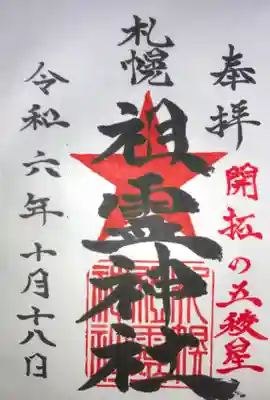 奉拝
開拓の五稜星
札幌
祖霊神社
令和六年十月十八日